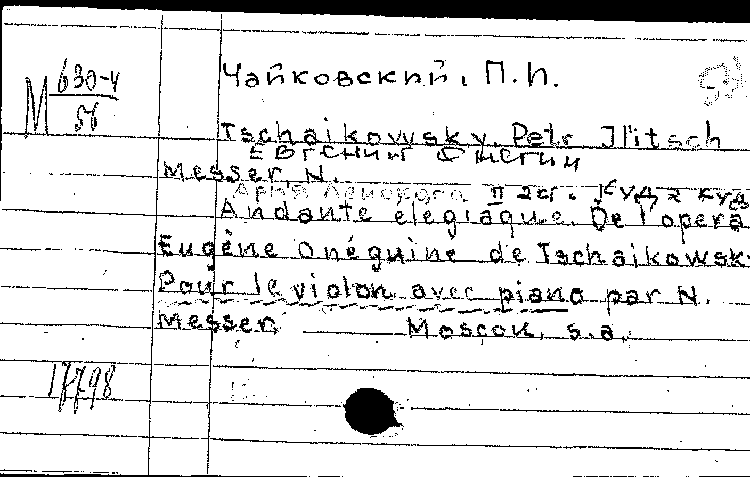 М 630-4
56
Чайковский, П.И.
Tschaikowsky, Petr Jlitsch
Евгений Онегин
Messer, N.
Ария Ленского II д. Куда куда
Andante elegiaque. De l'opera
Eugène Onéguine de Tschaikowsk
Pour le violon avec piano par N.
Messer. Moscou, s.a.
17798